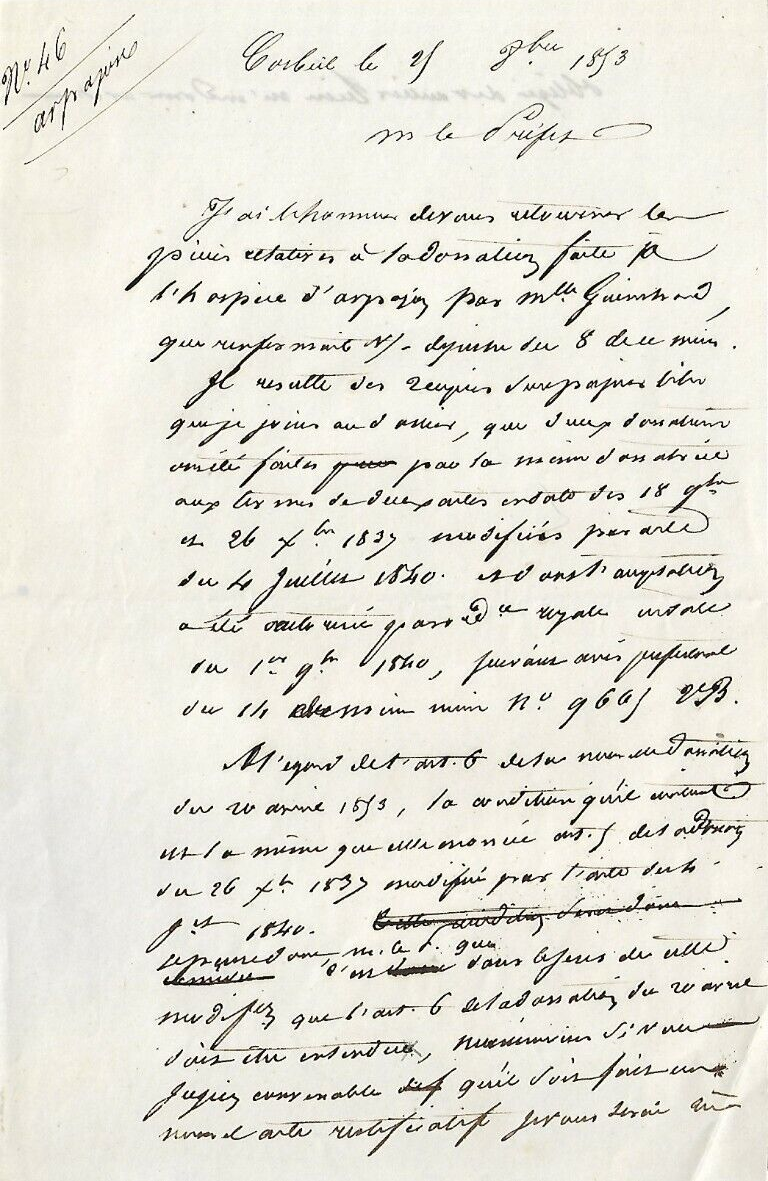 N° 46
arpajon
Corbeil le 25 8bre 1853
m le Préfet
J'ai l'honneur de vous retourner les
pièces relatives à la donation faite à
l'hospice d'arpajon par Mlle Guinchard,
que renfermait V/- dépêche du 8 de ce mois.
Il résulte des copies
que je joins au dossier, que deux donations
ont été faites par la même donatrice
aux termes de deux actes en date des 18 9bre
et 26 Xbre 1837 modifiés par acte
du 4 Juillet 1840. et dont l'acceptation
a été autorisée par Od ce royale en date
du 1er 9bre 1840, suivant avis préfectoral
du 14 du même mois N° 9665 2e B.
A l'égard de l'art. 6 de la nouvelle donation
du 20 avril 1853, la condition qu'il contient
est la même que celle énoncée art. 5 de la donation
du 26 Xbre 1837 modifié par l'acte du 4
Jet 1840.
Je pense donc, m. le P. que
c'est dans le sens de cette
modifon que l'art. 6 de la donation du 20 avril
doit être entendu, néanmoins si vous
jugiez convenable qu'il soit fait un
nouvel acte rectificatif je vous serai